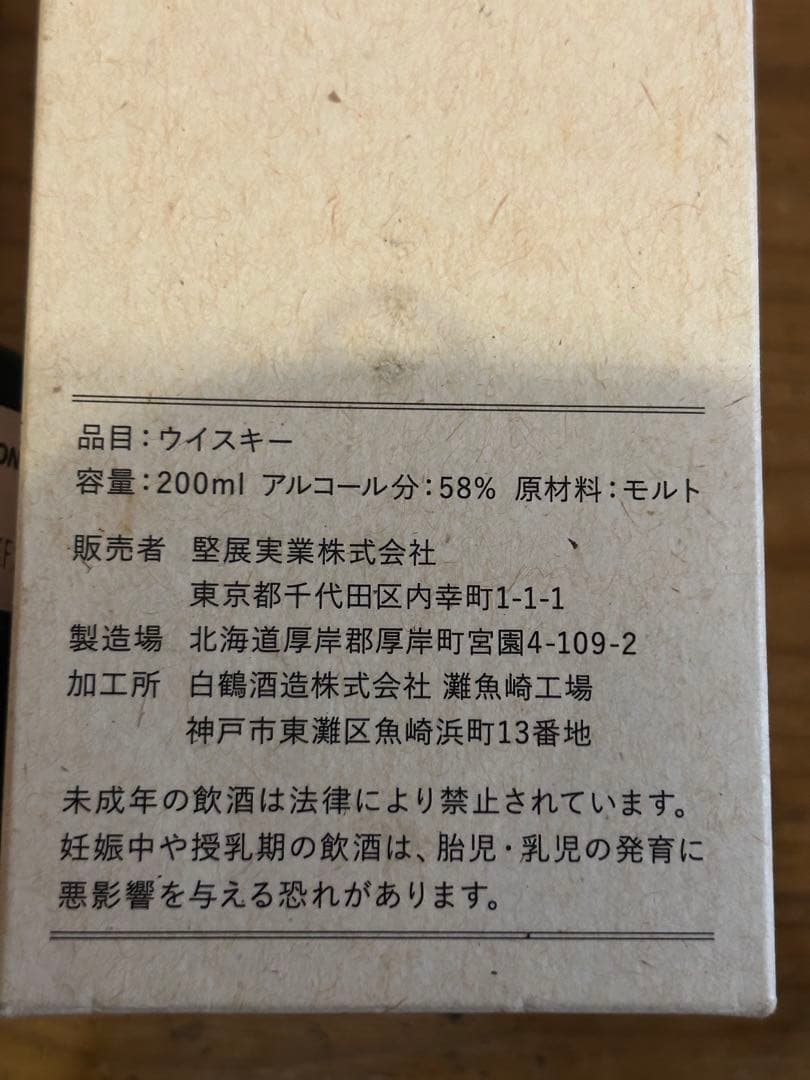 品目：ウイスキー
容量：200ml アルコール分：58% 原材料：モルト
販売者 堅展実業株式会社
東京都千代田区内幸町1-1-1
製造場 北海道厚岸郡厚岸町宮園4-109-2
加工所 白鶴酒造株式会社 灘魚崎工場
神戸市東灘区魚崎浜町13番地
未成年の飲酒は法律により禁止されています。
妊娠中や授乳期の飲酒は、胎児・乳児の発育に
悪影響を与える恐れがあります。